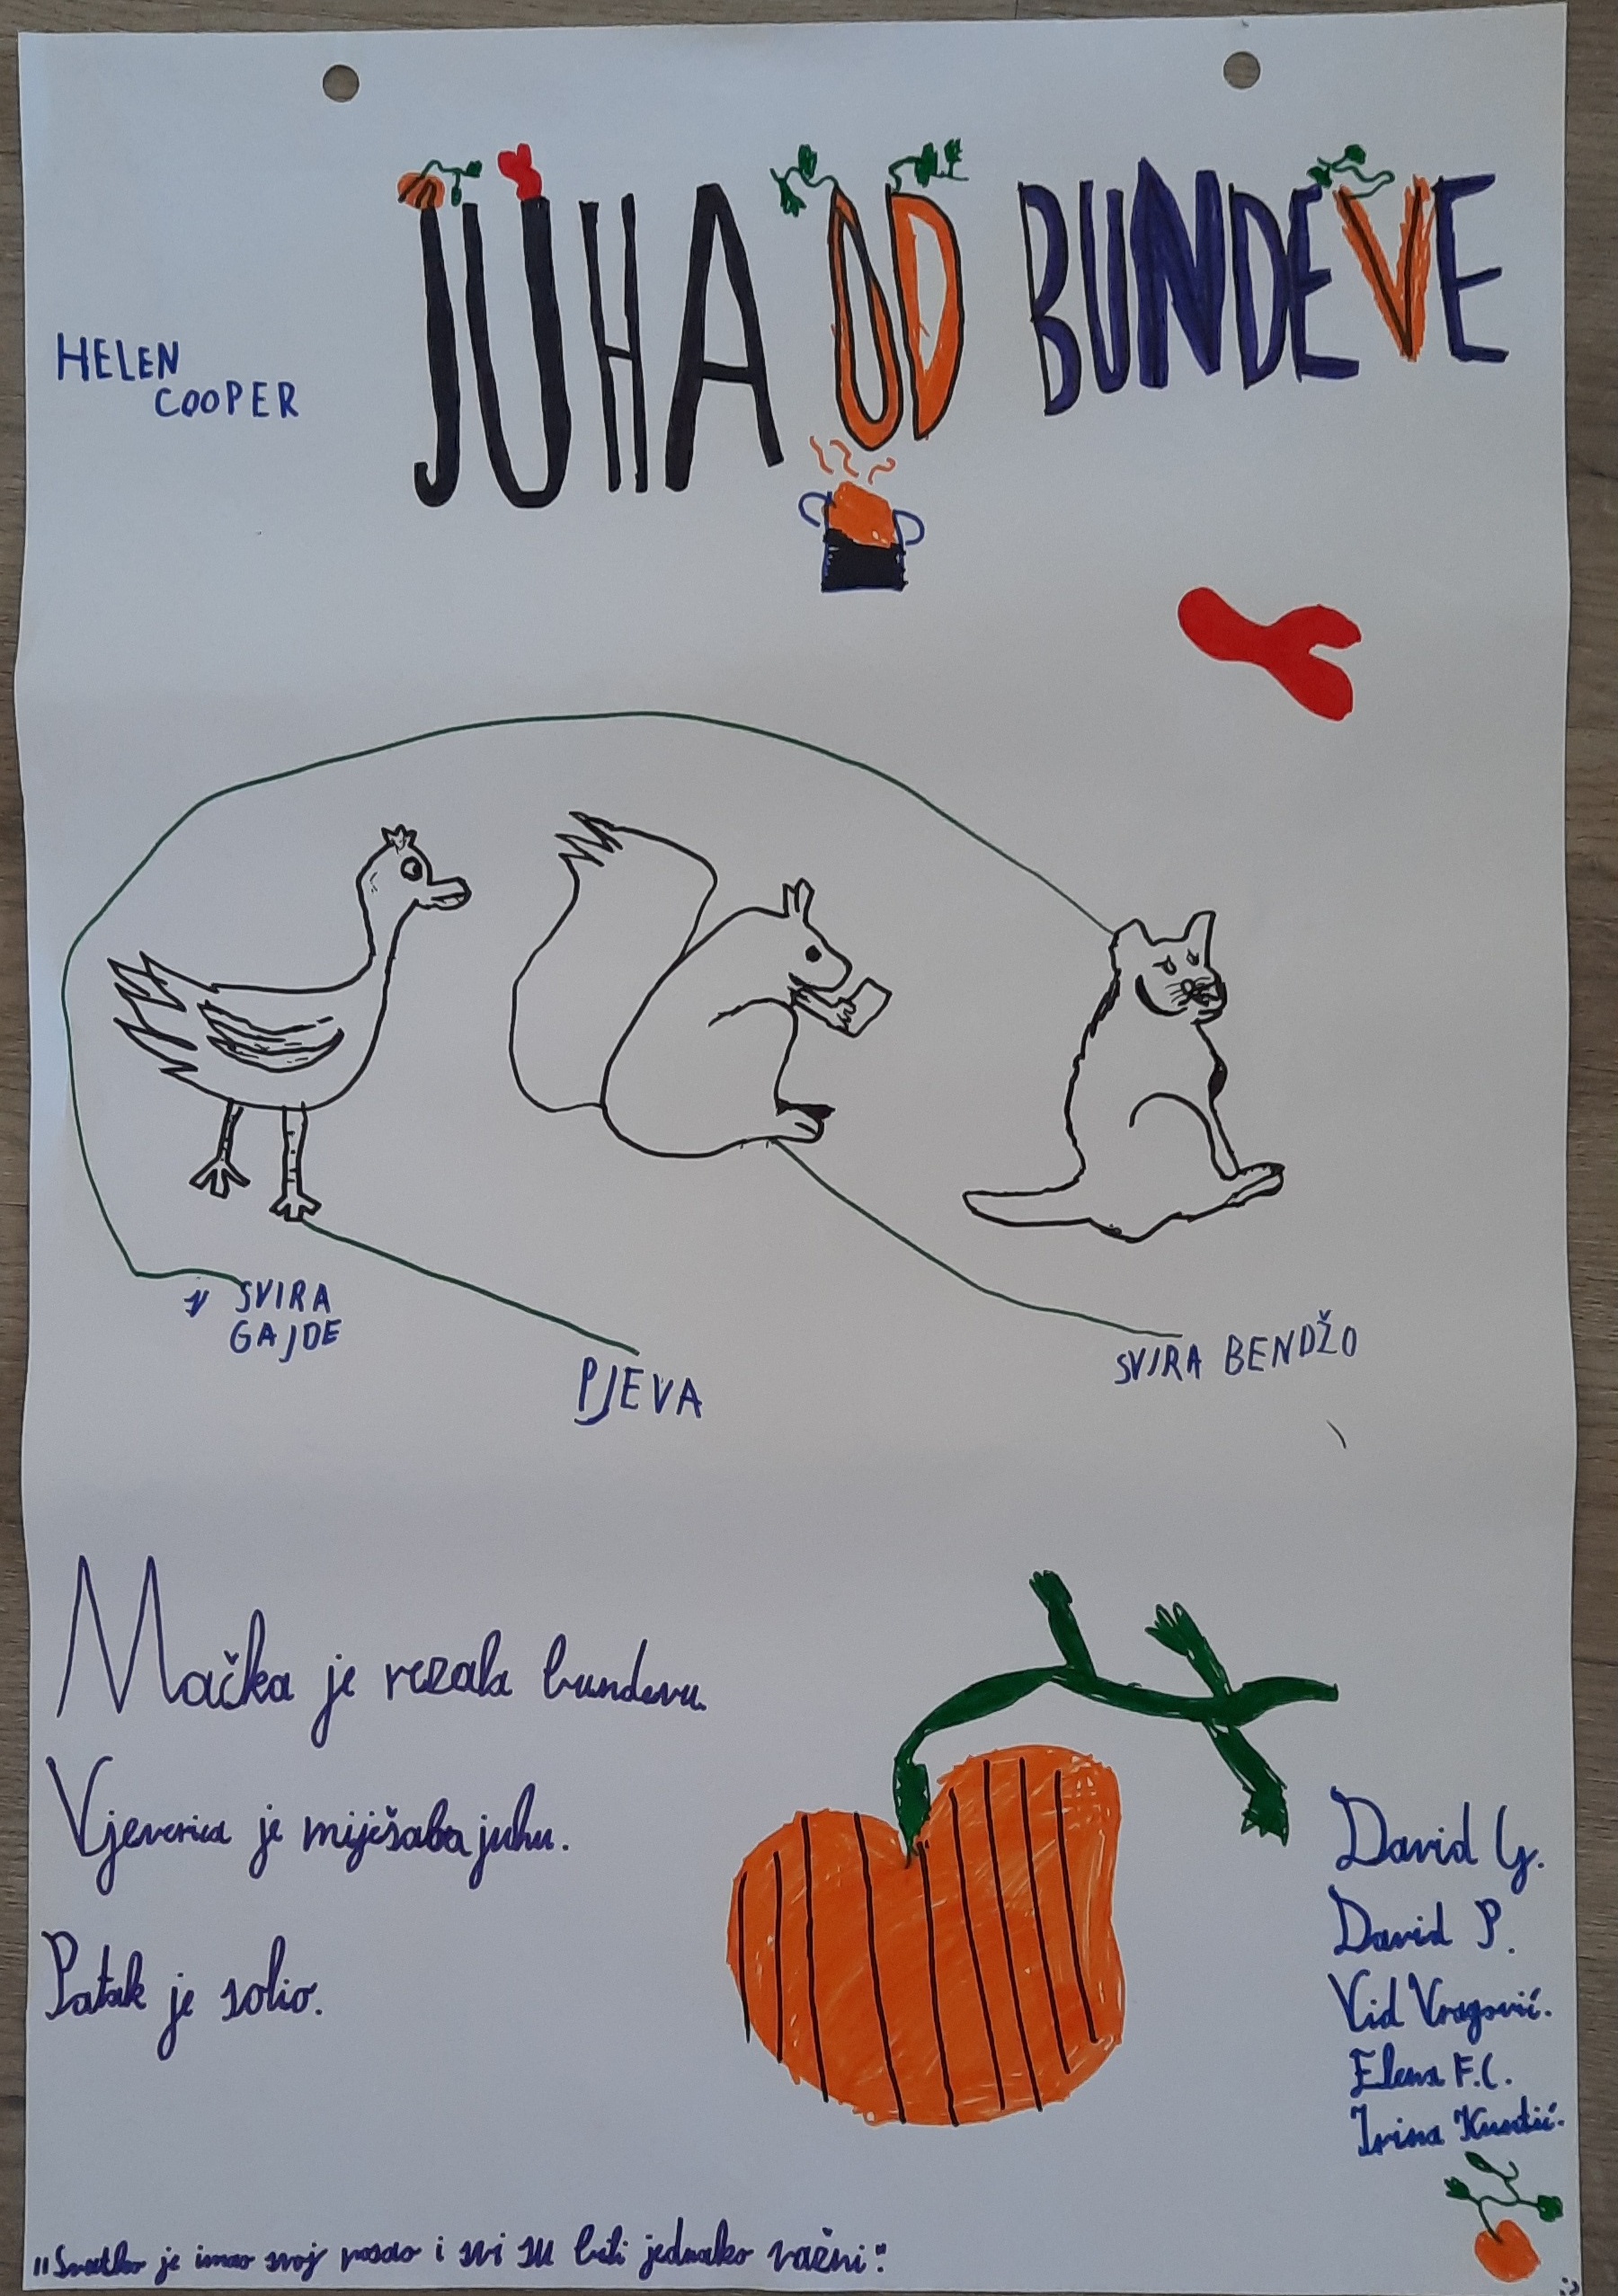 JUHA OD BUNDEVE
HELEN
COOPER
SVIRA
GAJDE
PJEVA
SVIRA BENDŽO
Mačka je rezala bundevu.
Vjeverica je miješala juhu.
Patak je solio.
David G.
David P.
Vid Vragović.
Elena F.C.
Irina
"Svatko je imao svoj posao i svi su bili jednako važni."
:)